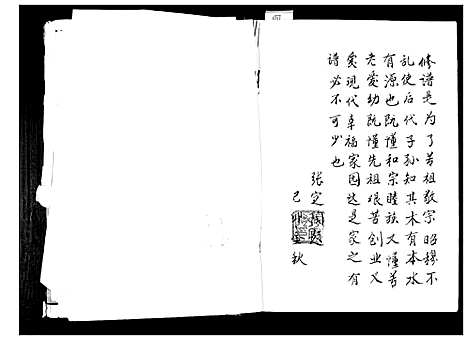 修谱是为了苦祖敬宗昭穆不
乱使后代子孙知其木有本水
有源也既懂和宗睦族又懂苦
老爱幼既懂先祖艰苦创业又
爱现代幸福家园这是家之有
谱必不可少也
张定
己 秋